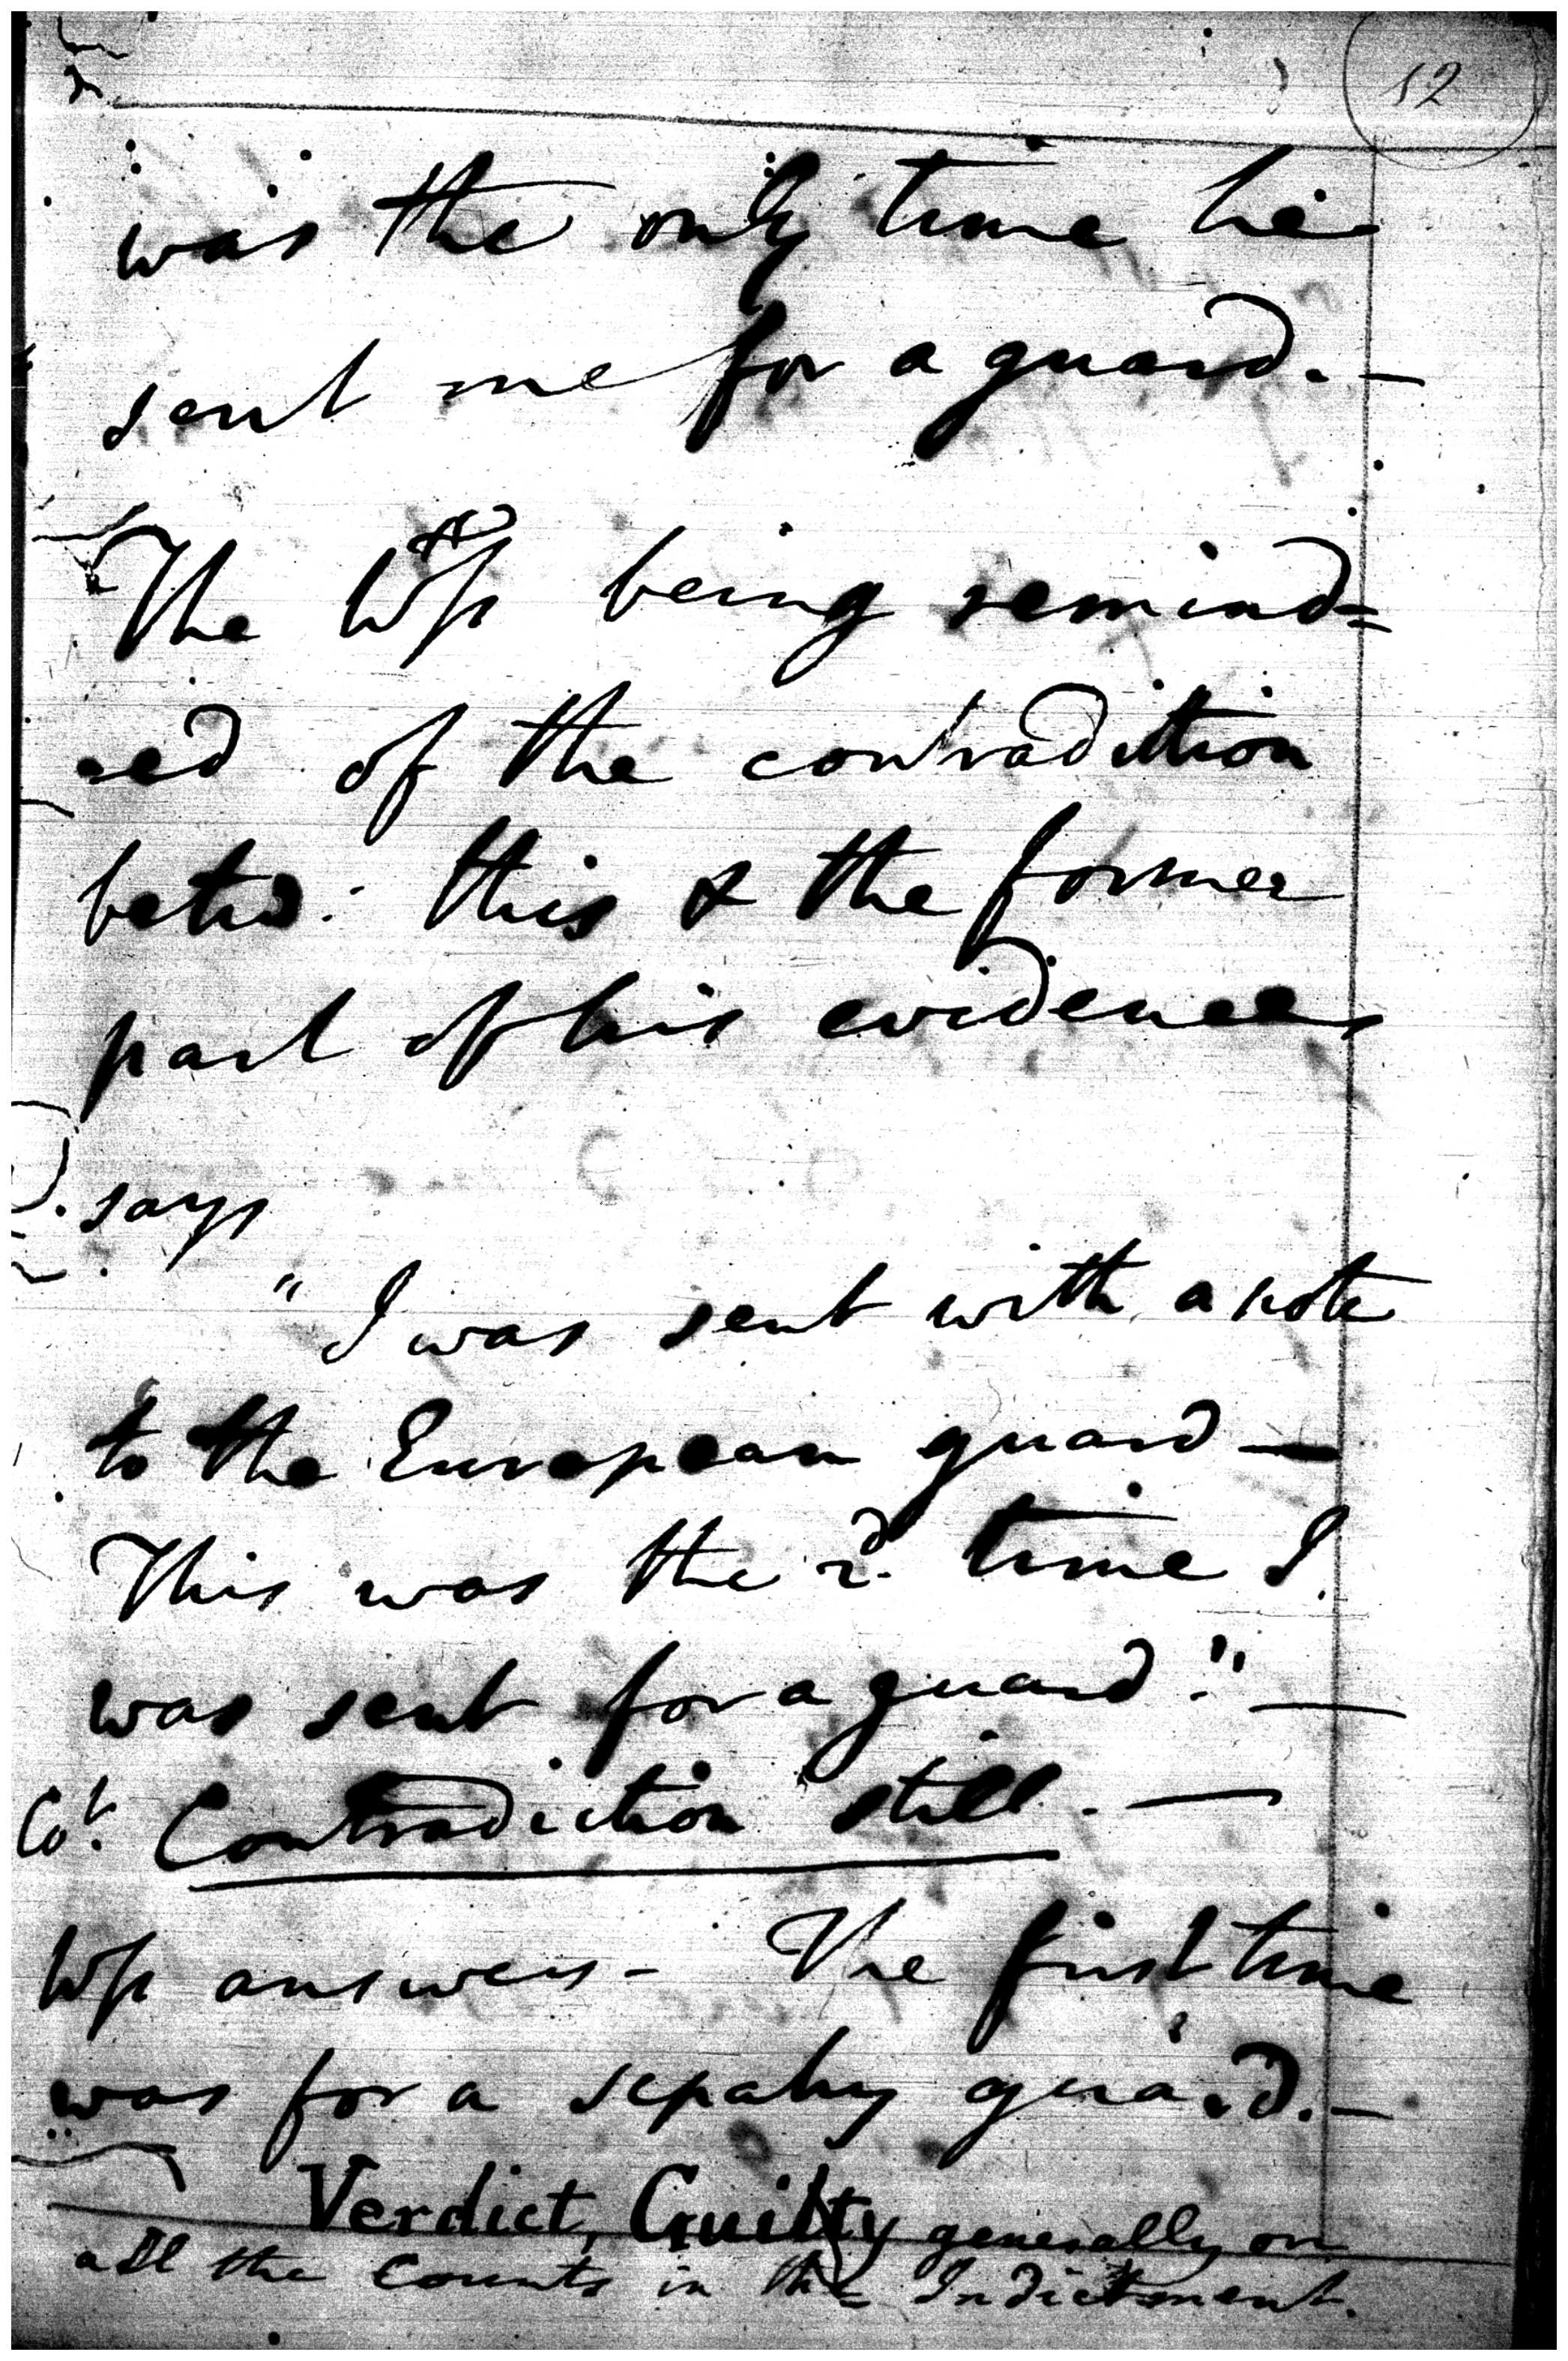 52
was the only time he
sent me for a guard. —
The Wss being remind=
-ed of the contradiction
betw: this & the former
part of his evidence
says
" I was sent with a note
to the European guard —
This was the 2d. time I
was sent for a guard." —
Cot. Contradiction still. —
Wss answers - The first time
was for a sepahy guard. —
Verdict, Guilty generally on
all the Counts in the Indictment.